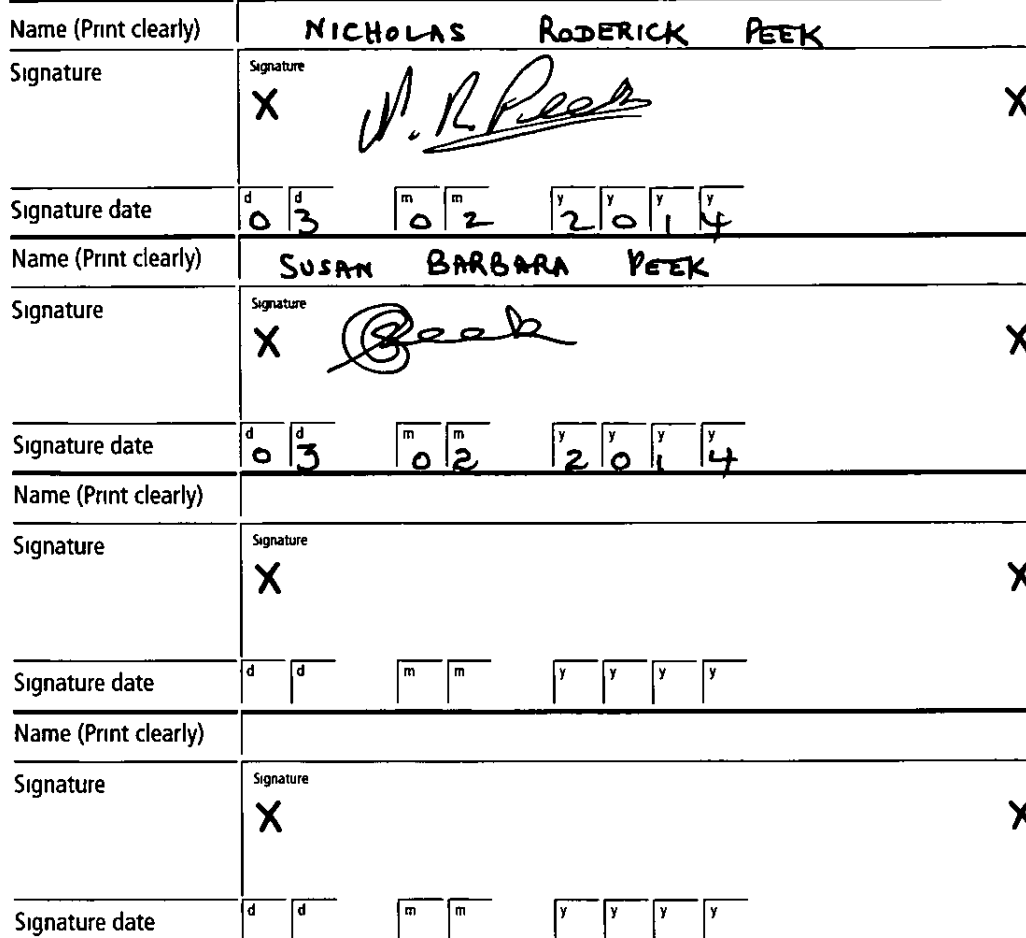 Name (Print clearly) NICHOLAS RODERICK PEEK
Signature Signature
X N. R. Peek X
Signature date d 0 d 3 m 0 m 2 y 2 y 0 y 1 y 4
Name (Print clearly) SUSAN BARBARA PEEK
Signature Signature
X SPeek X
Signature date d 0 d 3 m 0 m 2 y 2 y 0 y 1 y 4
Name (Print clearly)
Signature Signature
X X
Signature date d d m m y y y y
Name (Print clearly)
Signature Signature
X X
Signature date d d m m y y y y